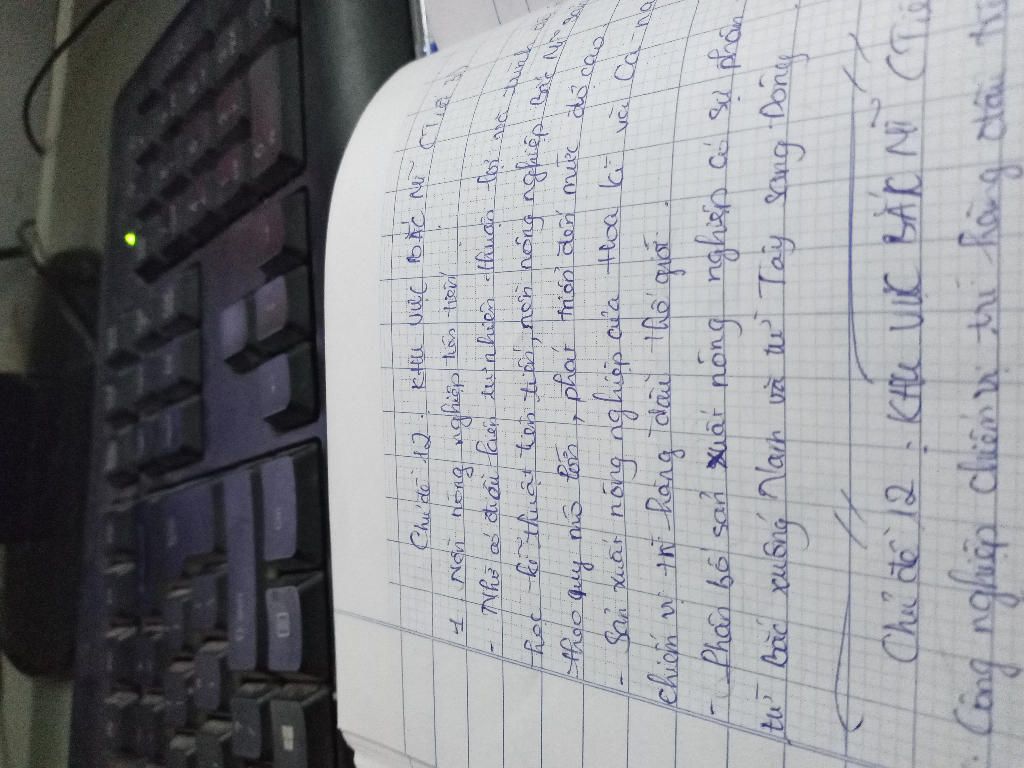 Chủ đề 12: KHU VỰC BẮC MĨ (Tiết
1. Nền nông nghiệp tiên tiến
- Nhờ có điều kiện tự nhiên thuận lợi và trình độ
học - kĩ thuật tiên tiến, nền nông nghiệp Bắc Mĩ sản
theo quy mô lớn, phát triển đến mức độ cao
- Sản xuất nông nghiệp của Hoa Kì và Ca-na
chiếm vị trí hàng đầu thế giới.
- Phân bố sản xuất nông nghiệp có sự phân
từ bắc xuống Nam và từ Tây sang Đông
Chủ đề 12: KHU VỰC BẮC MĨ (Tiế
Công nghiệp chiếm vị trí hàng đầu